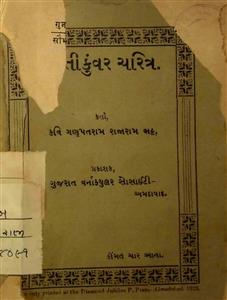 તીકુંવર ચરિત્ર.
કર્તા,
કવિ ગણપતરામ રાજારામ ભટ્ટ.
પ્રકાશક,
ગુજરાત વર્નાક્યુલર સોસાઈટી-
અમદાવાદ.
કિંમત ચાર આના.
printed at the Diamond Jubilee P. Press, Ahmedabad.